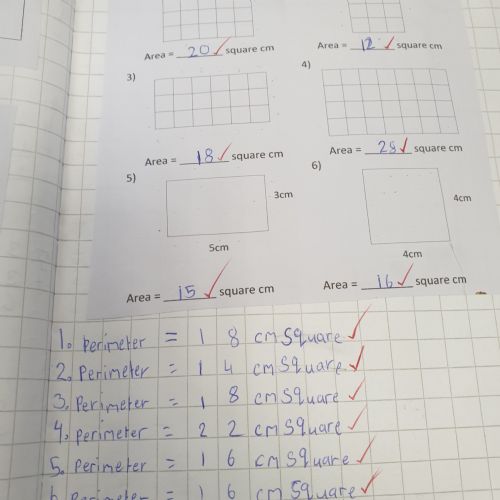 Area = 20 square cm
Area = 12 square cm
3)
4)
Area = 18 square cm
Area = 28 square cm
5)
6)
3cm
4cm
5cm
4cm
Area = 15 square cm
Area = 16 square cm
1. Perimeter = 18 cm square
2. Perimeter = 14 cm square
3. Perimeter = 18 cm square
4. Perimeter = 22 cm square
5. Perimeter = 16 cm square
6. Perimeter = 16 cm square